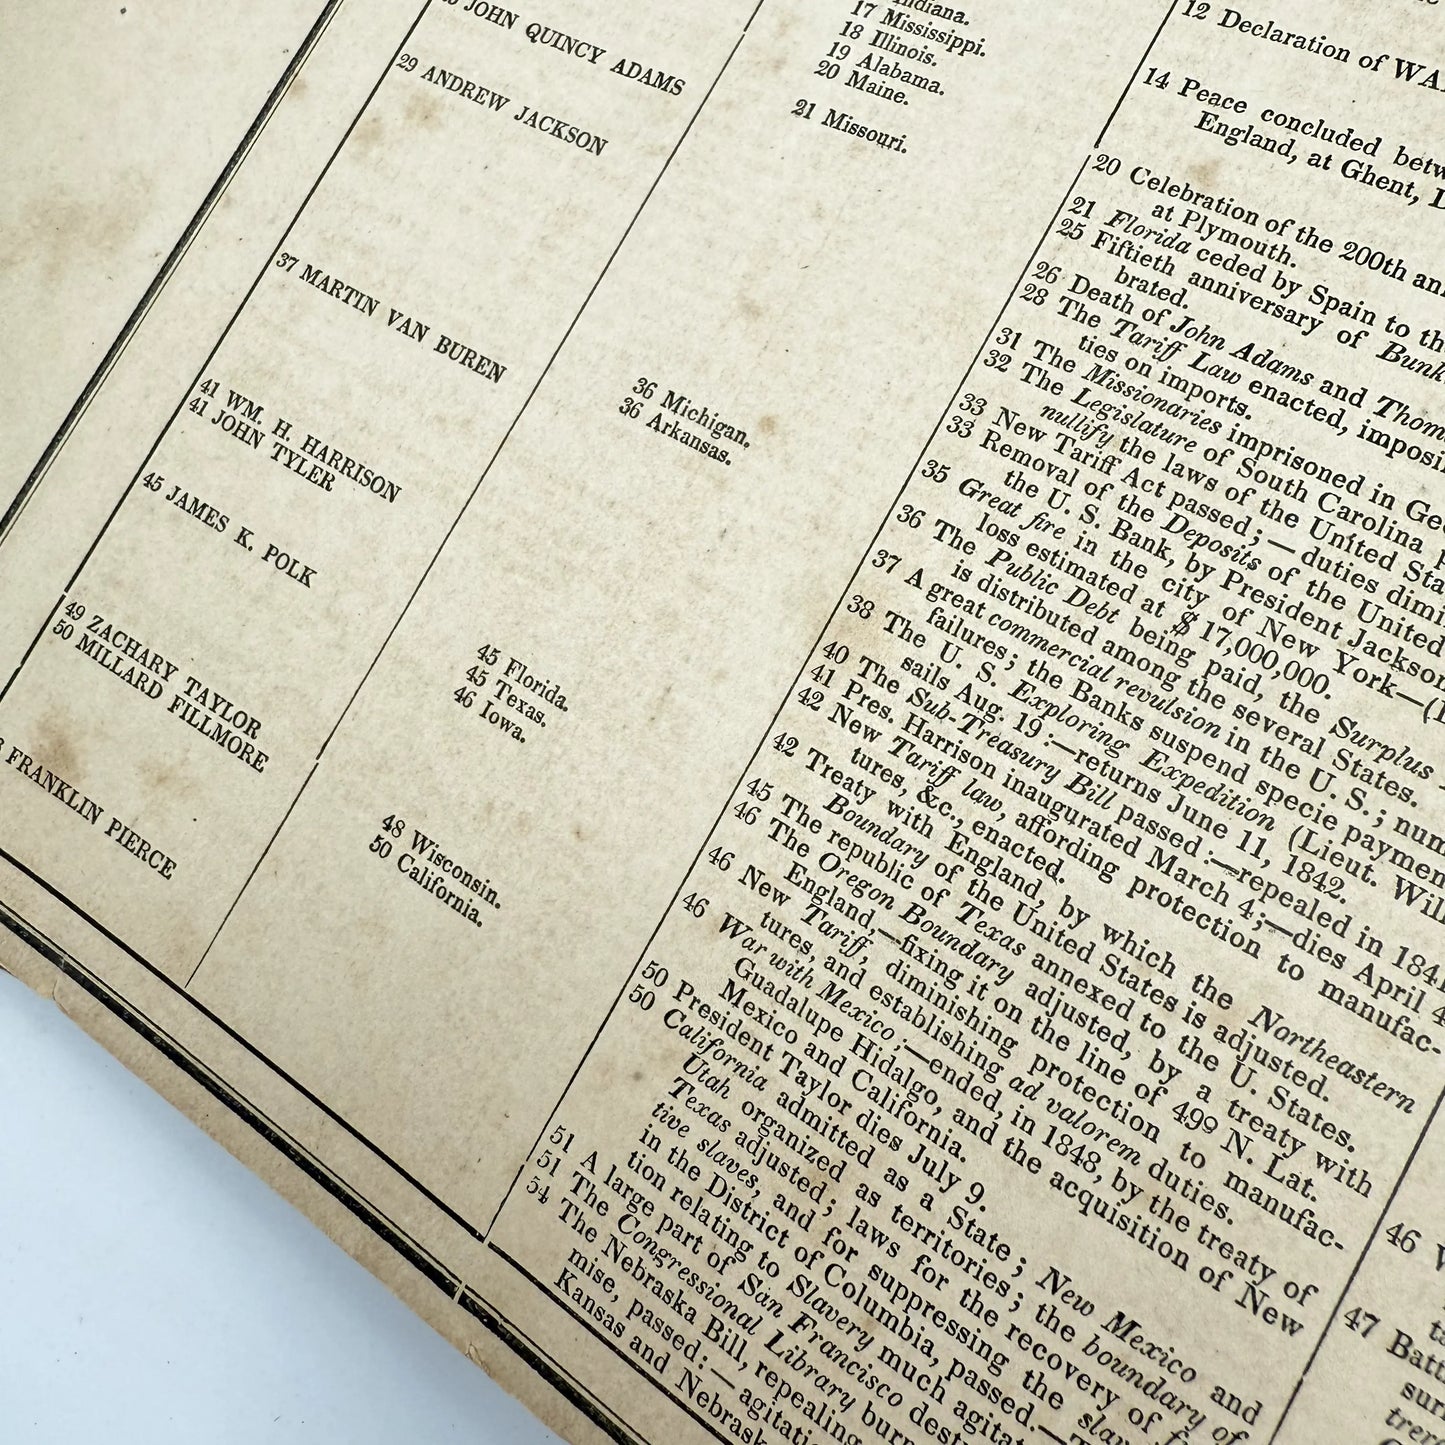 JOHN QUINCY ADAMS
29 ANDREW JACKSON
37 MARTIN VAN BUREN
41 WM. H. HARRISON
41 JOHN TYLER
45 JAMES K. POLK
49 ZACHARY TAYLOR
50 MILLARD FILLMORE
FRANKLIN PIERCE
Indiana.
17 Mississippi.
18 Illinois.
19 Alabama.
20 Maine.
21 Missouri.
36 Michigan.
36 Arkansas.
45 Florida.
45 Texas.
46 Iowa.
48 Wisconsin.
50 California.
12 Declaration of WA
14 Peace concluded betw
England, at Ghent,
20 Celebration of the 200th an
at Plymouth.
21 Florida ceded by Spain to th
25 Fiftieth anniversary of Bunk
brated.
26 Death of John Adams and Thom
28 The Tariff Law enacted, imposi
ties on imports.
31 The Missionaries imprisoned in Geo
32 The Legislature of South Carolina p
nullify the laws of the United Sta
33 New Tariff Act passed;—duties dimi
33 Removal of the Deposits of the United
the U. S. Bank, by President Jackson
35 Great fire in the city of New York—(
loss estimated at $17,000,000.
36 The Public Debt being paid, the Surplus
is distributed among the several States.
37 A great commercial revulsion in the U. S.; num
failures; the Banks suspend specie paymen
38 The U. S. Exploring Expedition (Lieut. Wil
sails Aug. 19:—returns June 11, 1842.
40 The Sub-Treasury Bill passed:—repealed in 1841
41 Pres. Harrison inaugurated March 4;—dies April 4
42 New Tariff law, affording protection to manufac-
tures, &c., enacted.
42 Treaty with England, by which the Northeastern
Boundary of the United States is adjusted.
45 The republic of Texas annexed to the U. States.
46 The Oregon Boundary adjusted, by a treaty with
England,—fixing it on the line of 49° N. Lat.
46 New Tariff, diminishing protection to manufac-
tures, and establishing ad valorem duties.
46 War with Mexico;—ended, in 1848, by the treaty of
Guadalupe Hidalgo, and the acquisition of New
Mexico and California.
50 President Taylor dies July 9.
50 California admitted as a State; New Mexico and
Utah organized as territories; the boundary of
Texas adjusted; laws for the recovery of
tive slaves, and for suppressing the
in the District of Columbia, passed.—
tion relating to Slavery much agitat
51 A large part of San Francisco dest
51 The Congressional Library burn
54 The Nebraska Bill, repealing
mise, passed:—agitati
Kansas and Nebrask
46
47 Batt